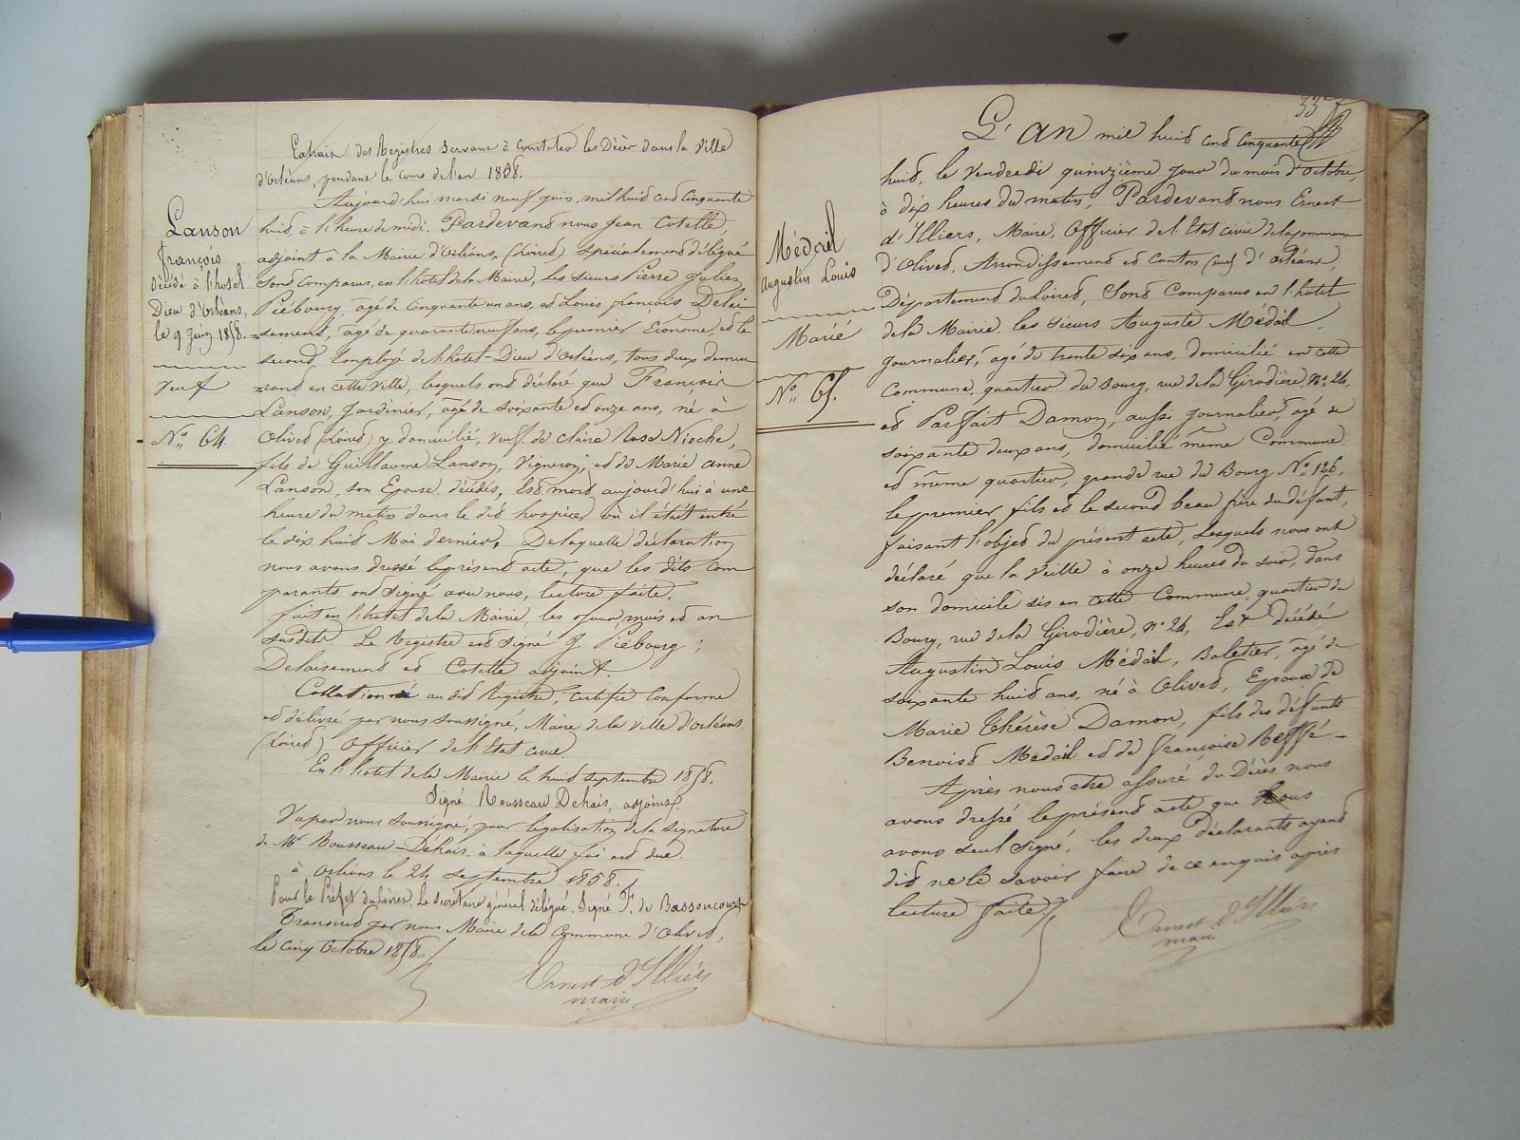 Extrait des Registres servant à constater les Décès dans la Ville
d'Orléans, pendant le cours de l'an 1858.
Lanson
François
décédé à l'hotel
Dieu d'Orléans,
le 9 Juin 1858.
Veuf
N.° 64
Aujourd'hui mardi neuf juin, mil huit cent cinquante
huit à l'heure de midi. Pardevant nous Jean Cotelle,
adjoint à la Mairie d'Orléans, (Loiret) spécialement délégué
sont comparus, en l'hotel de la Mairie, les sieurs Pierre Julien
Piébourg, agé de cinquante un ans, et Louis françois Delai
sement, agé de quarante neuf ans, le premier Econome, et le
second, Employé de l'hotel-Dieu d'Orléans, tous deux demeu
rant en cette Ville, lesquels ont déclaré que François
Lanson, Jardinier, âgé de soixante et onze ans, né à
Olivet (Loiret) y domicilié, veuf de Claire Rose Nioche,
fils de Guillaume Lanson, Vigneron, et de Marie anne
Lanson, son Epouse décédés, Est mort aujourd'hui à une
heure du matin dans le dit hospice, où il était entré
le dix huit Mai dernier. De laquelle déclaration
nous avons dressé le présent acte, que les dits com
parants ont signé avec nous, lecture faite.
fait en l'hotel de la Mairie, les jour, mois et an
susdits Le Registre est signé J. Piébourg;
Delaisement et Cotelle adjoint.
Collationné au dit Registre, Certifié Conforme
et délivré par nous soussigné, Maire de la Ville d'Orléans
(Loiret) Officier de l'Etat civil.
En l'hotel de la Mairie le huit septembre 1858.
Signé Rousseau Dehais, adjoint.
Vu par nous soussigné, pour légalisation de la signature
de Mr Rousseau-Dehais à laquelle foi est due.
à Orléans le 24 septembre 1858.
Pour le Préfet du Loiret, Le Secrétaire général délégué. Signé F. de Bassoncourt
Transcrit par nous Maire de la Commune d'Olivet,
le cinq Octobre 1858.
Ernest d'Illiers
maire
Médail
Augustin Louis
Marié
N.° 65.
L'an mil huit cent cinquante
huit, le Vendredi quinzième jour du mois d'Octobre,
à dix heures du matin, Pardevant nous Ernest
d'Illiers, Maire, Officier de l'Etat civil de la commune
d'Olivet, Arrondissement et Canton (sud) d'Orléans,
Département du Loiret, Sont Comparus en l'hotel
de la Mairie les sieurs Auguste Médail
Journalier, agé de trente six ans, domicilié en cette
Commune, quartier du Bourg, rue de la Girodière, N.° 26,
et Parfait Damon, aussi journalier, agé de
soixante deux ans, domicilié même Commune
et même quartier, grande rue du Bourg N.° 126,
le premier fils et le second beau frère du défunt,
faisant l'objet du présent acte, Lesquels nous ont
déclaré que la Veille à onze heures du soir, dans
son domicile sis en cette Commune, quartier du
Bourg, rue de la Girodière, n.° 26, Est décédé
Augustin Louis Médail, Batelier, âgé de
soixante huit ans, né à Olivet, Epoux de
Marie Thérèse Damon, fils des défunts
Benoist Médail et de françoise
Après nous etre assuré du Décès nous
avons dressé le présent acte que Nous
avons seul signé, les deux déclarants ayant
dit ne le savoir faire de ce enquis après
lecture faite.
Ernest d'Illiers
maire